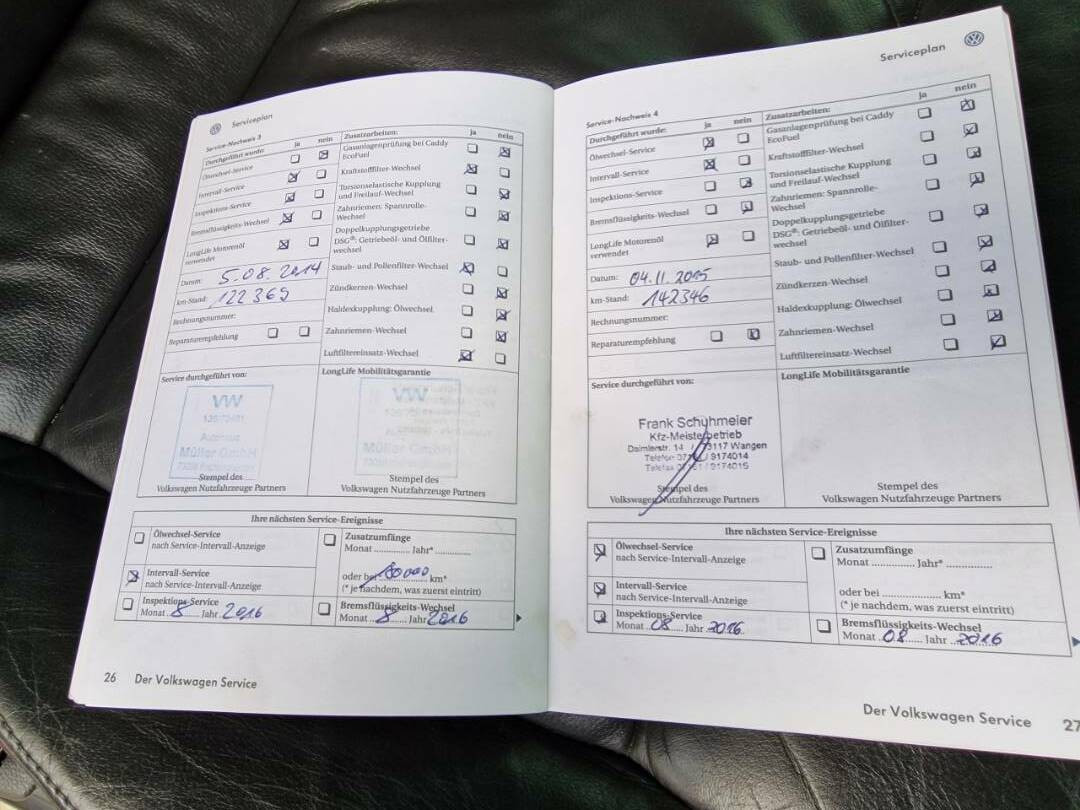 Serviceplan
Service-Nachweis 3
Durchgeführt wurde: ja nein
Ölwechsel-Service
Intervall-Service
Inspektions-Service
Bremsflüssigkeits-Wechsel
LongLife Motorenöl
verwendet
Datum: 5.08.2014
km-Stand: 122 369
Rechnungsnummer:
Reparaturempfehlung
Zusatzarbeiten: ja nein
Gasanlagenprüfung bei Caddy
EcoFuel
Kraftstofffilter-Wechsel
Torsionselastische Kupplung
und Freilauf-Wechsel
Zahnriemen: Spannrolle-
Wechsel
Doppelkupplungsgetriebe
DSG®: Getriebeöl- und Ölfilter-
wechsel
Staub- und Pollenfilter-Wechsel
Zündkerzen-Wechsel
Haldexkupplung: Ölwechsel
Zahnriemen-Wechsel
Luftfiltereinsatz-Wechsel
Service durchgeführt von:
VW
Autohaus
Müller GmbH
Stempel des
Volkswagen Nutzfahrzeuge Partners
LongLife Mobilitätsgarantie
VW
Müller GmbH
Stempel des
Volkswagen Nutzfahrzeuge Partners
Ihre nächsten Service-Ereignisse
Ölwechsel-Service
nach Service-Intervall-Anzeige
Intervall-Service
nach Service-Intervall-Anzeige
Inspektions-Service
Monat 8 Jahr 2016
Zusatzumfänge
Monat ............ Jahr* ............
oder bei km*
(* je nachdem, was zuerst eintritt)
Bremsflüssigkeits-Wechsel
Monat 8 Jahr 2016
26 Der Volkswagen Service
Serviceplan
Service-Nachweis 4
Durchgeführt wurde: ja nein
Ölwechsel-Service
Intervall-Service
Inspektions-Service
Bremsflüssigkeits-Wechsel
LongLife Motorenöl
verwendet
Datum: 04.11.2015
km-Stand: 142346
Rechnungsnummer:
Reparaturempfehlung
Zusatzarbeiten: ja nein
Gasanlagenprüfung bei Caddy
EcoFuel
Kraftstofffilter-Wechsel
Torsionselastische Kupplung
und Freilauf-Wechsel
Zahnriemen: Spannrolle-
Wechsel
Doppelkupplungsgetriebe
DSG®: Getriebeöl- und Ölfilter-
wechsel
Staub- und Pollenfilter-Wechsel
Zündkerzen-Wechsel
Haldexkupplung: Ölwechsel
Zahnriemen-Wechsel
Luftfiltereinsatz-Wechsel
Service durchgeführt von:
Frank Schuhmeier
Kfz-Meisterbetrieb
Daimlerstr. 14 / 73117 Wangen
Telefon 07161 / 9174014
Telefax 07161 / 9174015
Stempel des
Volkswagen Nutzfahrzeuge Partners
LongLife Mobilitätsgarantie
Stempel des
Volkswagen Nutzfahrzeuge Partners
Ihre nächsten Service-Ereignisse
Ölwechsel-Service
nach Service-Intervall-Anzeige
Intervall-Service
nach Service-Intervall-Anzeige
Inspektions-Service
Monat 08 Jahr 2016
Zusatzumfänge
Monat ............ Jahr* ............
oder bei ........................ km*
(* je nachdem, was zuerst eintritt)
Bremsflüssigkeits-Wechsel
Monat 08 Jahr 2016
Der Volkswagen Service 27